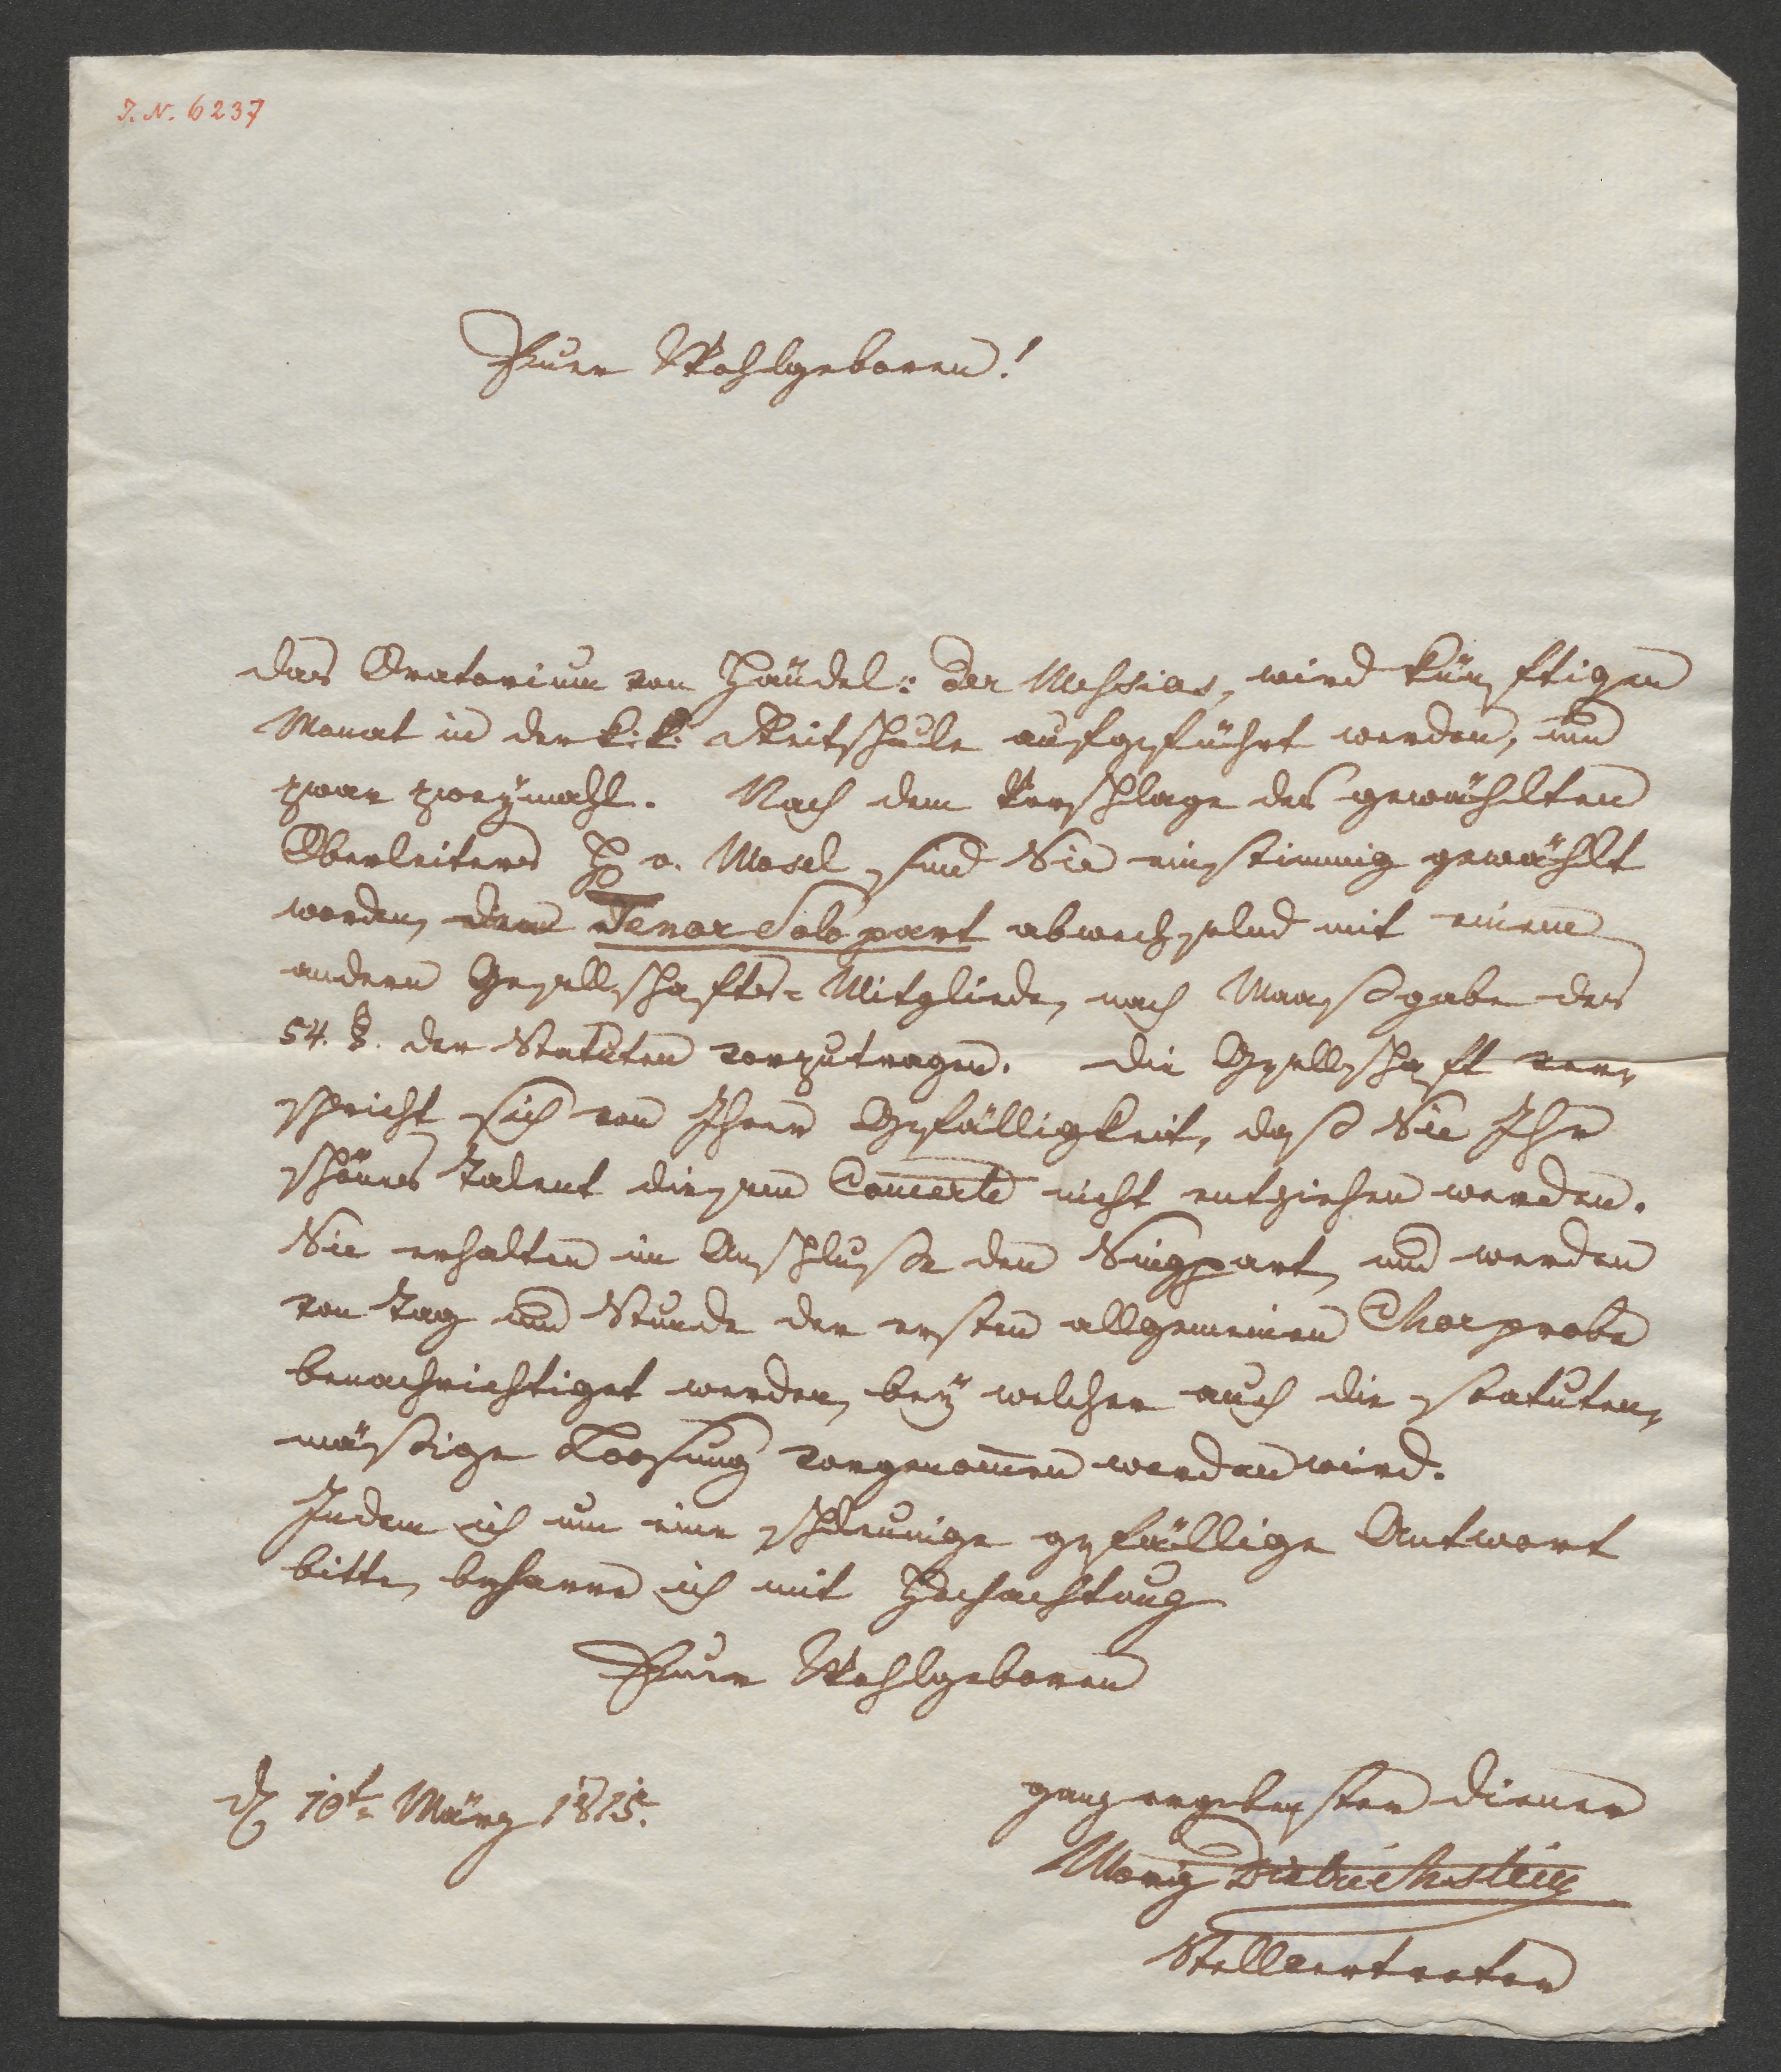 I. N. 6237
Euer Wohlgeboren!
Das Oratorium von Händel: Der Messias, wird künftigen
Monat in der k: k: Reitschule aufgeführt werden, und
zwar zweymahl. Nach dem Vorschlage des gewählten
Oberleiters H v. Mosel sind Sie einstimmig gewählt
worden, den Tenor Solo part abwechselnd mit einem
andern Gesellschafts-Mitgliede, nach Maaßgabe des
54. §. der Statuten vorzutragen. Die Gesellschaft ver-
spricht sich von Ihrer Gefälligkeit, daß Sie Ihr
schönes Talent diesem Concerte nicht entziehen werden.
Sie erhalten im Anschluße den Singpart, und werden
von Tag und Stunde der ersten allgemeinen Chorprobe
benachrichtiget werden, bey welcher auch die statuten-
mäßige Loosung vorgenommen werden wird.
Indem ich um eine schleunige gefällige Antwort
bitte, beharre ich mit Hochachtung
Euer Wohlgeboren
d 10t März 1815.
ganz ergebenster Diener
Moriz Dietrichstein
Stellvertreter